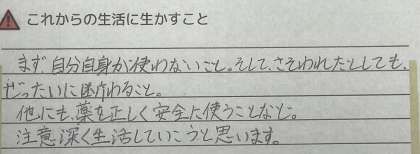 これからの生活に生かすこと
まず、自分自身が使わないこと。そして、さそわれたとしても、
ぜったいに断わること。
他にも、薬を正しく安全に使うことなど。
注意深く生活していこうと思います。